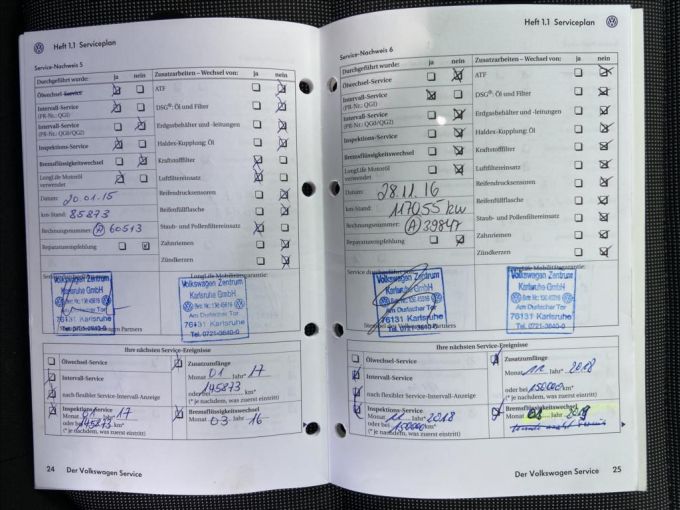 Heft 1.1 Serviceplan
Service-Nachweis 5
Durchgeführt wurde: ja nein
Ölwechsel-Service
Intervall-Service
(PR-Nr.: QGI)
Intervall-Service
(PR-Nr.: QG0/QG2)
Inspektions-Service
Bremsflüssigkeitswechsel
LongLife Motoröl
verwendet
Datum: 20.01.15
km-Stand: 85873
Rechnungsnummer: A 60513
Reparaturempfehlung
Zusatzarbeiten – Wechsel von: ja nein
ATF
DSG®: Öl und Filter
Erdgasbehälter und -leitungen
Haldex-Kupplung: Öl
Kraftstofffilter
Luftfiltereinsatz
Reifendrucksensoren
Reifenfüllflasche
Staub- und Pollenfiltereinsatz
Zahnriemen
Zündkerzen
LongLife Mobilitätsgarantie:
Volkswagen Zentrum
Karlsruhe GmbH
Am Durlacher Tor
76131 Karlsruhe
Partners
Volkswagen Zentrum
Karlsruhe GmbH
Am Durlacher Tor
76131 Karlsruhe
Tel. 0721-3640-0
Ihre nächsten Service-Ereignisse
Ölwechsel-Service
Intervall-Service
nach flexibler Service-Intervall-Anzeige
Inspektions-Service
Monat 01 Jahr* 17
oder bei 145873 km*
(* je nachdem, was zuerst eintritt)
Zusatzumfänge
Monat 01 Jahr* 17
oder bei 145873 km*
(* je nachdem, was zuerst eintritt)
Bremsflüssigkeitswechsel
Monat 03 Jahr 16
24 Der Volkswagen Service
Heft 1.1 Serviceplan
Service-Nachweis 6
Durchgeführt wurde: ja nein
Ölwechsel-Service
Intervall-Service
(PR-Nr.: QGI)
Intervall-Service
(PR-Nr.: QG0/QG2)
Inspektions-Service
Bremsflüssigkeitswechsel
LongLife Motoröl
verwendet
Datum: 28.11.16
km-Stand: 117055 km
Rechnungsnummer: A 39847
Reparaturempfehlung
Zusatzarbeiten – Wechsel von: ja nein
ATF
DSG®: Öl und Filter
Erdgasbehälter und -leitungen
Haldex-Kupplung: Öl
Kraftstofffilter
Luftfiltereinsatz
Reifendrucksensoren
Reifenfüllflasche
Staub- und Pollenfiltereinsatz
Zahnriemen
Zündkerzen
Service durchgeführt
Mobilitätsgarantie:
Volkswagen Zentrum
Karlsruhe GmbH
Am Durlacher Tor
76131 Karlsruhe
Tel. 0721-3640-0
Partners
Volkswagen Zentrum
Karlsruhe GmbH
Am Durlacher Tor
76131 Karlsruhe
Tel. 0721-3640-0
Ihre nächsten Service-Ereignisse
Ölwechsel-Service
Intervall-Service
nach flexibler Service-Intervall-Anzeige
Inspektions-Service
Monat 11 Jahr* 2018
oder bei 150000 km*
(* je nachdem, was zuerst eintritt)
Zusatzumfänge
Monat 11 Jahr* 2018
oder bei 150000 km*
(* je nachdem, was zuerst eintritt)
Bremsflüssigkeitswechsel
Monat Jahr
Der Volkswagen Service 25